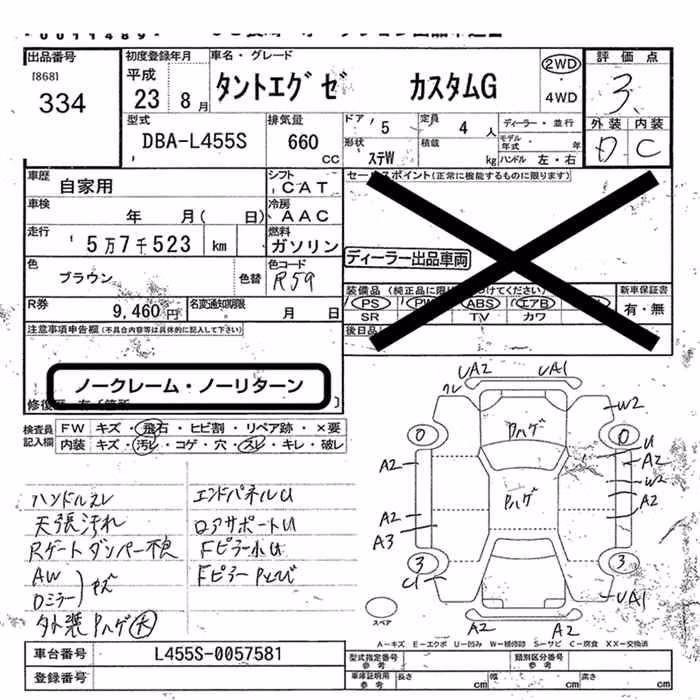 出品番号
[868]
334
初度登録年月
平成
23 8月
車名・グレード
タントエグゼ カスタムG
2WD
・
4WD
評価点
3
外装 内装
D C
型式
DBA-L455S
排気量
660 CC
ドア 5
定員 4 人
ディーラー・並行
モデル年式 年
形状 ステW
積載 kg
ハンドル 左・右
車歴 自家用
シフト CAT
車検 年 月( 日)
冷房 AAC
走行 5万7千523 km
燃料 ガソリン
色 ブラウン 色替
色コード R59
R券 9,460円
名変通知期限 月 日
セールスポイント(正常に機能するものに限ります)
ディーラー出品車両
PS ABS エアB
SR TV カワ
新車保証書
有・無
後日品
注意事項申告欄(不具合内容等は具体的に記入して下さい)
ノークレーム・ノーリターン
検査員記入欄
FW キズ・飛石・ヒビ割・リペア跡・×要
内装 キズ・汚レ・コゲ・穴・スレ・キレ・破レ
ハンドルスレ
天張汚れ
Rゲートダンパー不良
AW
Dミラー
キズ
外装Pハゲ大
エンドパネルU
ロアサポートU
Fピラー小U
FピラーPとび
UA2 UA1
クレ
W2
Pハゲ
0 0
U
A2 A2
W2
Pハゲ
A2
A2
A3
3 3
C1
UA1
A2
A2
スペア
A-キズ E-エクボ U-凹み W-補修跡 S-サビ C-腐食 XX-交換済
車台番号 L455S-0057581
登録番号
型式指定番号 参考
類別区分番号 参考
車庫証明用 参考
長さ cm 幅 cm 高さ cm